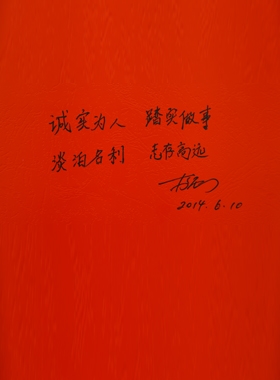 诚实为人 踏实做事
淡泊名利 志存高远
2014.6.10